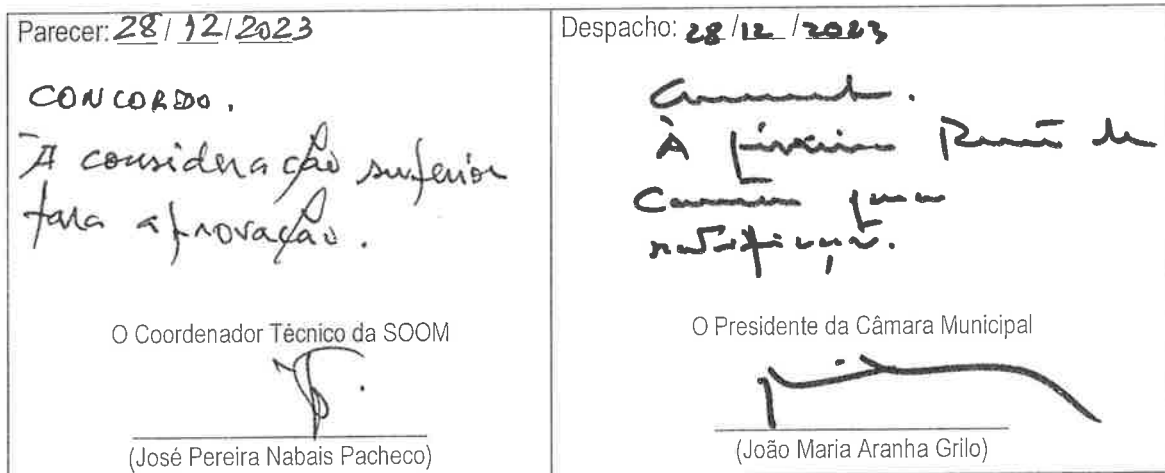 Parecer: 28/12/2023
CONCORDO.
À consideração superior
para aprovação.
O Coordenador Técnico da SOOM
(José Pereira Nabais Pacheco)
Despacho: 28/12/2023
À próxima Reunião de
Câmara para
ratificação.
O Presidente da Câmara Municipal
(João Maria Aranha Grilo)